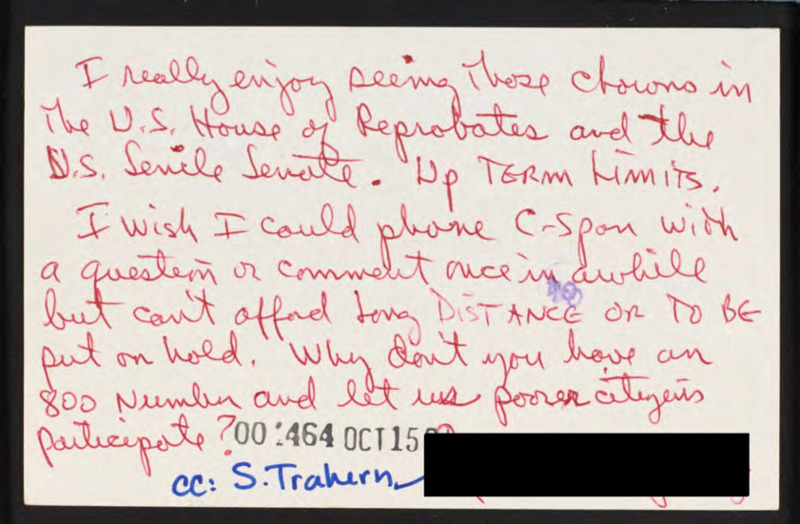 I really enjoy seeing those clowns in
the U.S. House of Reprobates and the
U.S. Senile Senate. Up TERM LIMITS.
I wish I could phone C-Span with
a question or comment once in awhile
but can't afford Long DISTANCE OR TO BE
put on hold. Why don't you have an
800 Number and let us poorer citizens
participate? 00:464 OCT 15
cc: S. Trahern